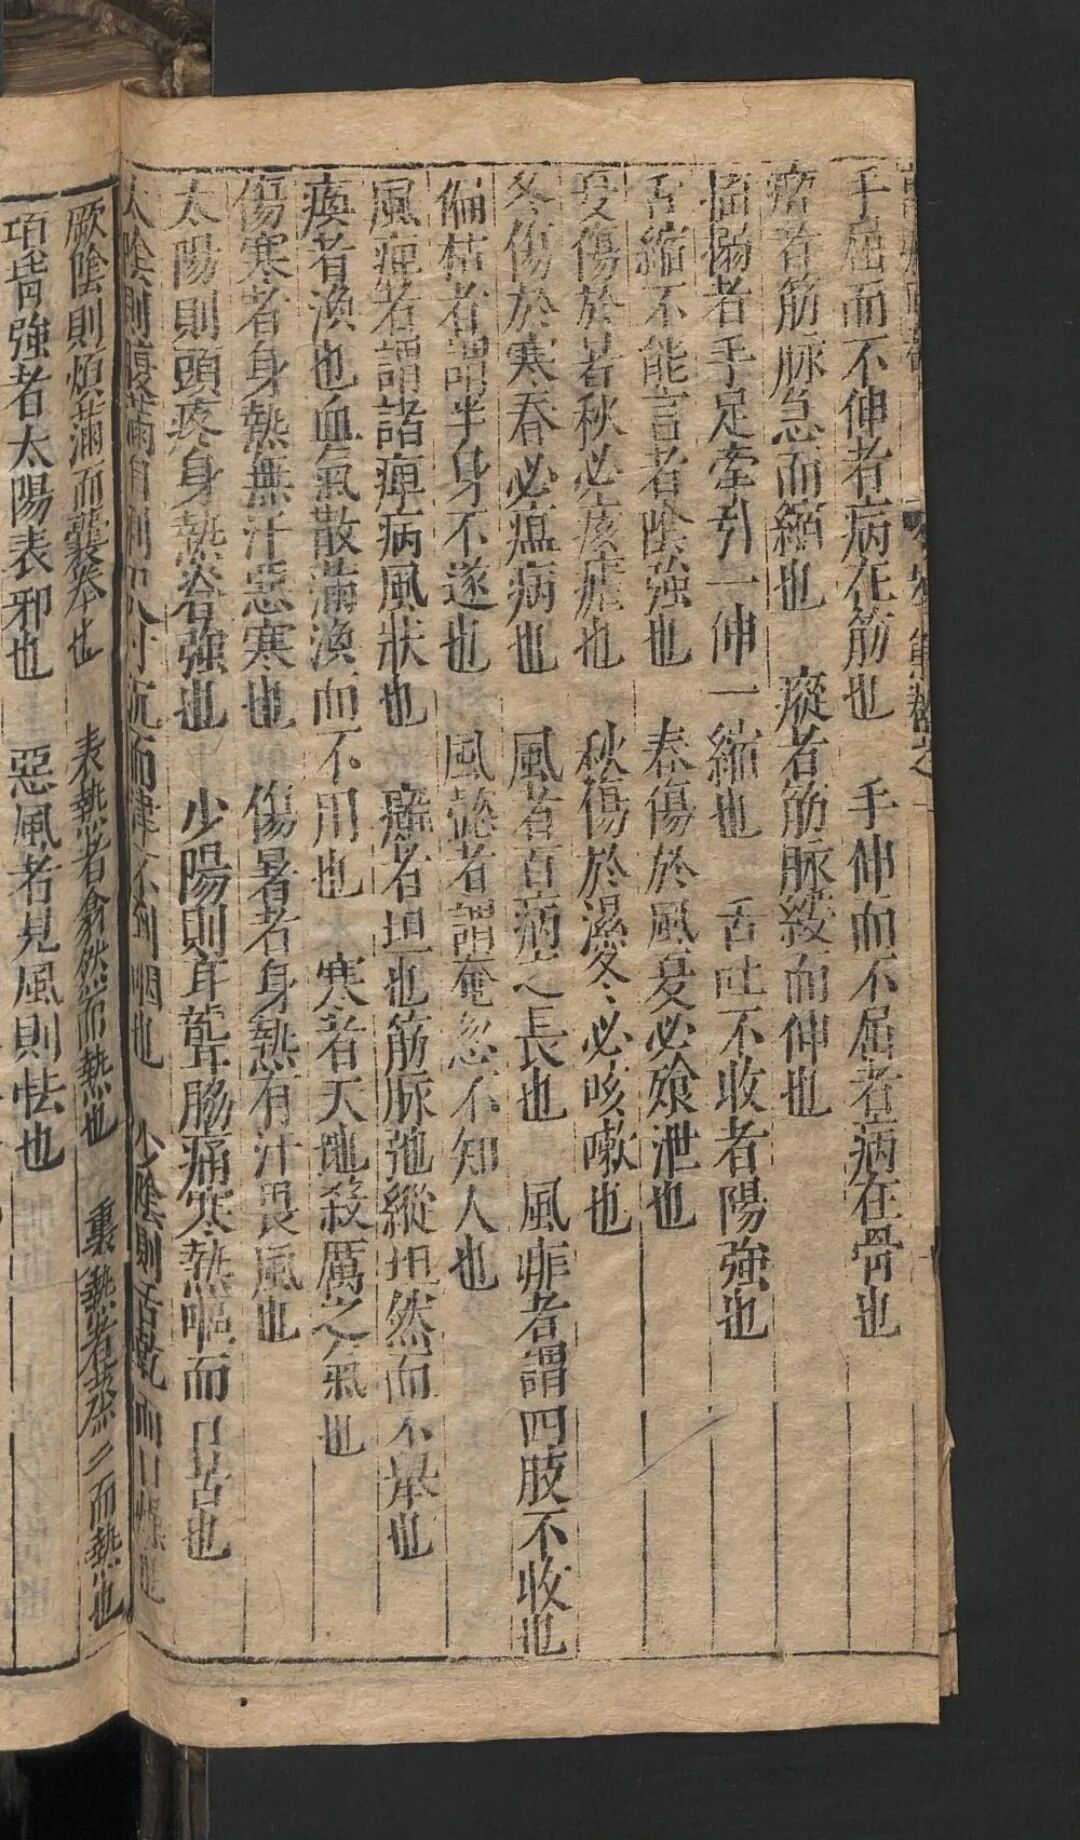 手屈而不伸者病在筋也　手伸而不屈者病在骨也
瘛者筋脉急而縮也　瘲者筋脉緩而伸也
搐搦者手足牽引一伸一縮也　舌吐不收者陽強也
舌縮不能言者陰強也　春傷於風夏必飧泄也
夏傷於暑秋必痎瘧也　秋傷於濕冬必咳嗽也
冬傷於寒春必瘟病也　風者百病之長也　風痱者謂四肢不收也
偏枯者謂半身不遂也　風懿者謂奄忽不知人也
風痺者謂諸痺病風狀也　癱者坦也筋脉弛縱坦然而不舉也
瘓者渙也血氣散滿渙而不用也　寒者天地殺厲之氣也
傷寒者身熱無汗惡寒也　傷暑者身熱有汗畏風也
太陽則頭疼身熱脊強也　少陽則耳聾脇痛寒熱嘔而口苦也
太陰則腹滿自利尺寸沉而津不到咽也　少陰則舌乾而口燥也
厥陰則煩滿而囊拳也　表熱者翕然而熱也　裏熱者蒸蒸而熱也
項背強者太陽表邪也　惡風者見風則怯也